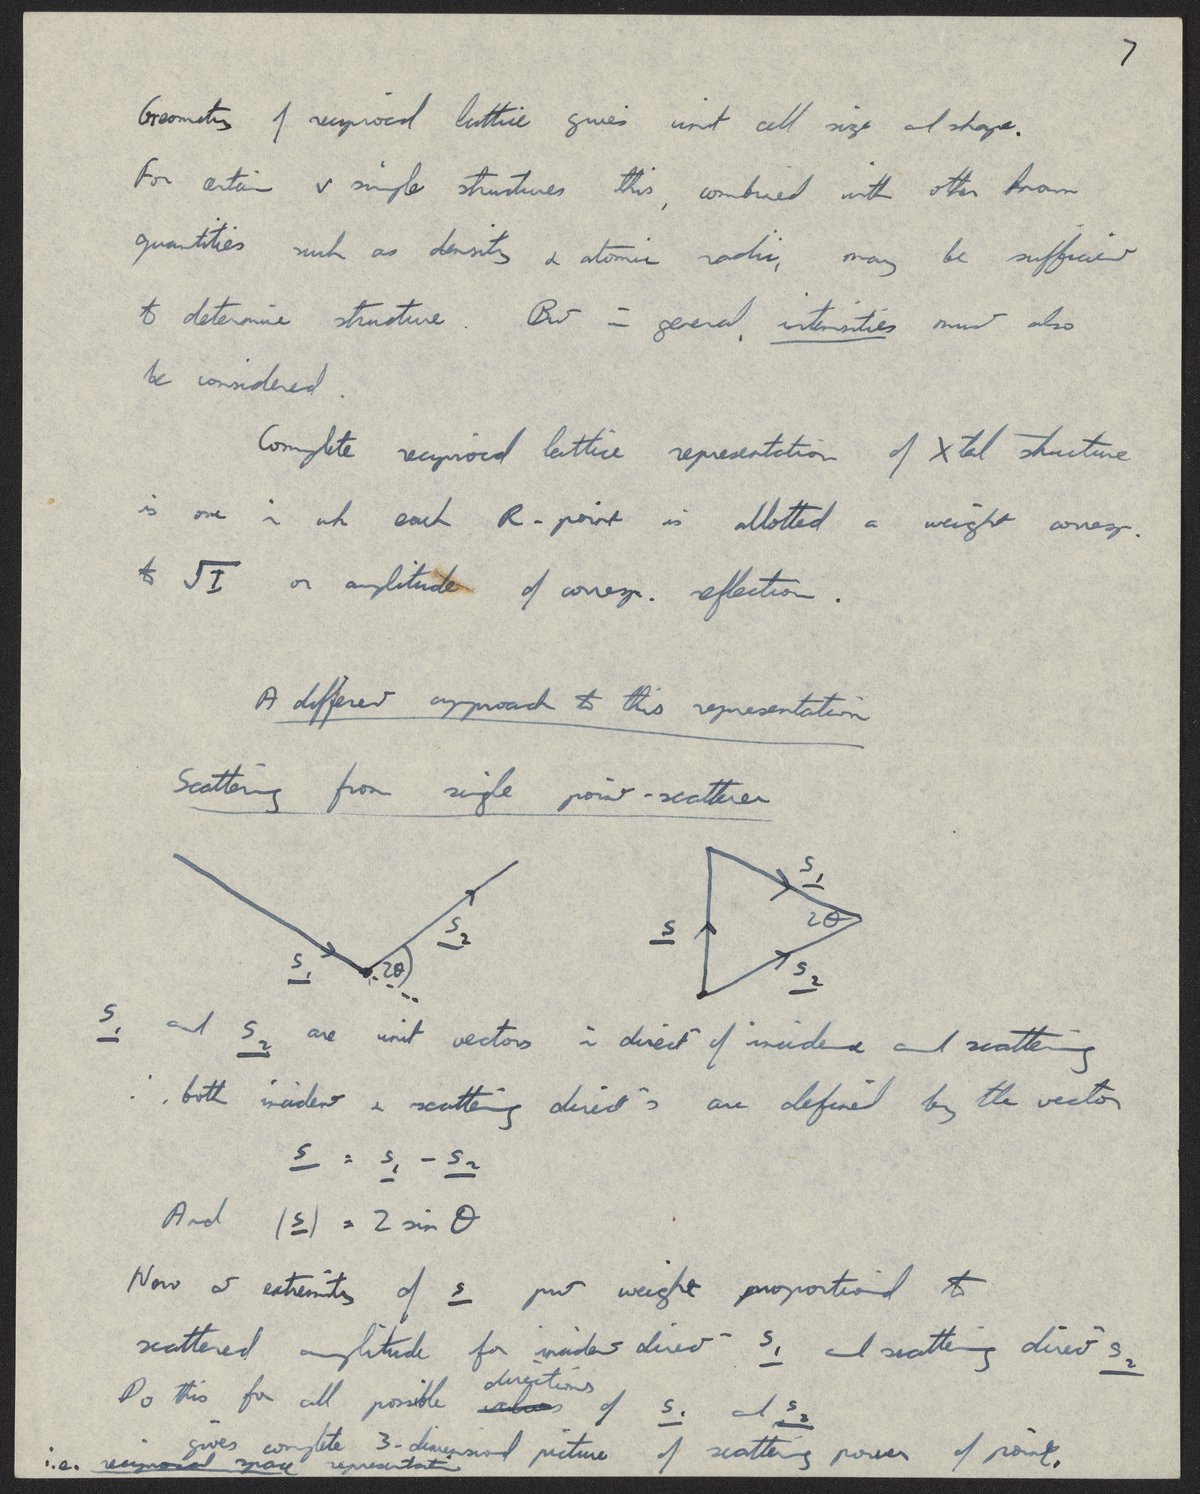 7
Geometry of reciprocal lattice gives unit cell size and shape.
For certain v simple structures this, combined with other known
quantities such as density & atomic radii, may be sufficient
to determine structure. But in general, intensities must also
be considered.
Complete reciprocal lattice representation of Xtal structure
is one in wh each R-point is allotted a weight corresp.
to √I or amplitude of corresp. reflection.
A different approach to this representation
Scattering from single point-scatterer
s1 s2 2θ
s s1 2θ s2
s1 and s2 are unit vectors in direct⁻ of incidence and scattering
∴ both incident & scattering direct⁻s are defined by the vector
s = s1 - s2
And |s| = 2 sin θ
Now at extremity of s put weight proportional to
scattered amplitude for incident direct⁻ s1 and scattering direct⁻ s2
Do this for all possible values directions of s1 and s2
gives complete 3-dimensional picture of scattering power of point.
i.e. reciprocal space representation